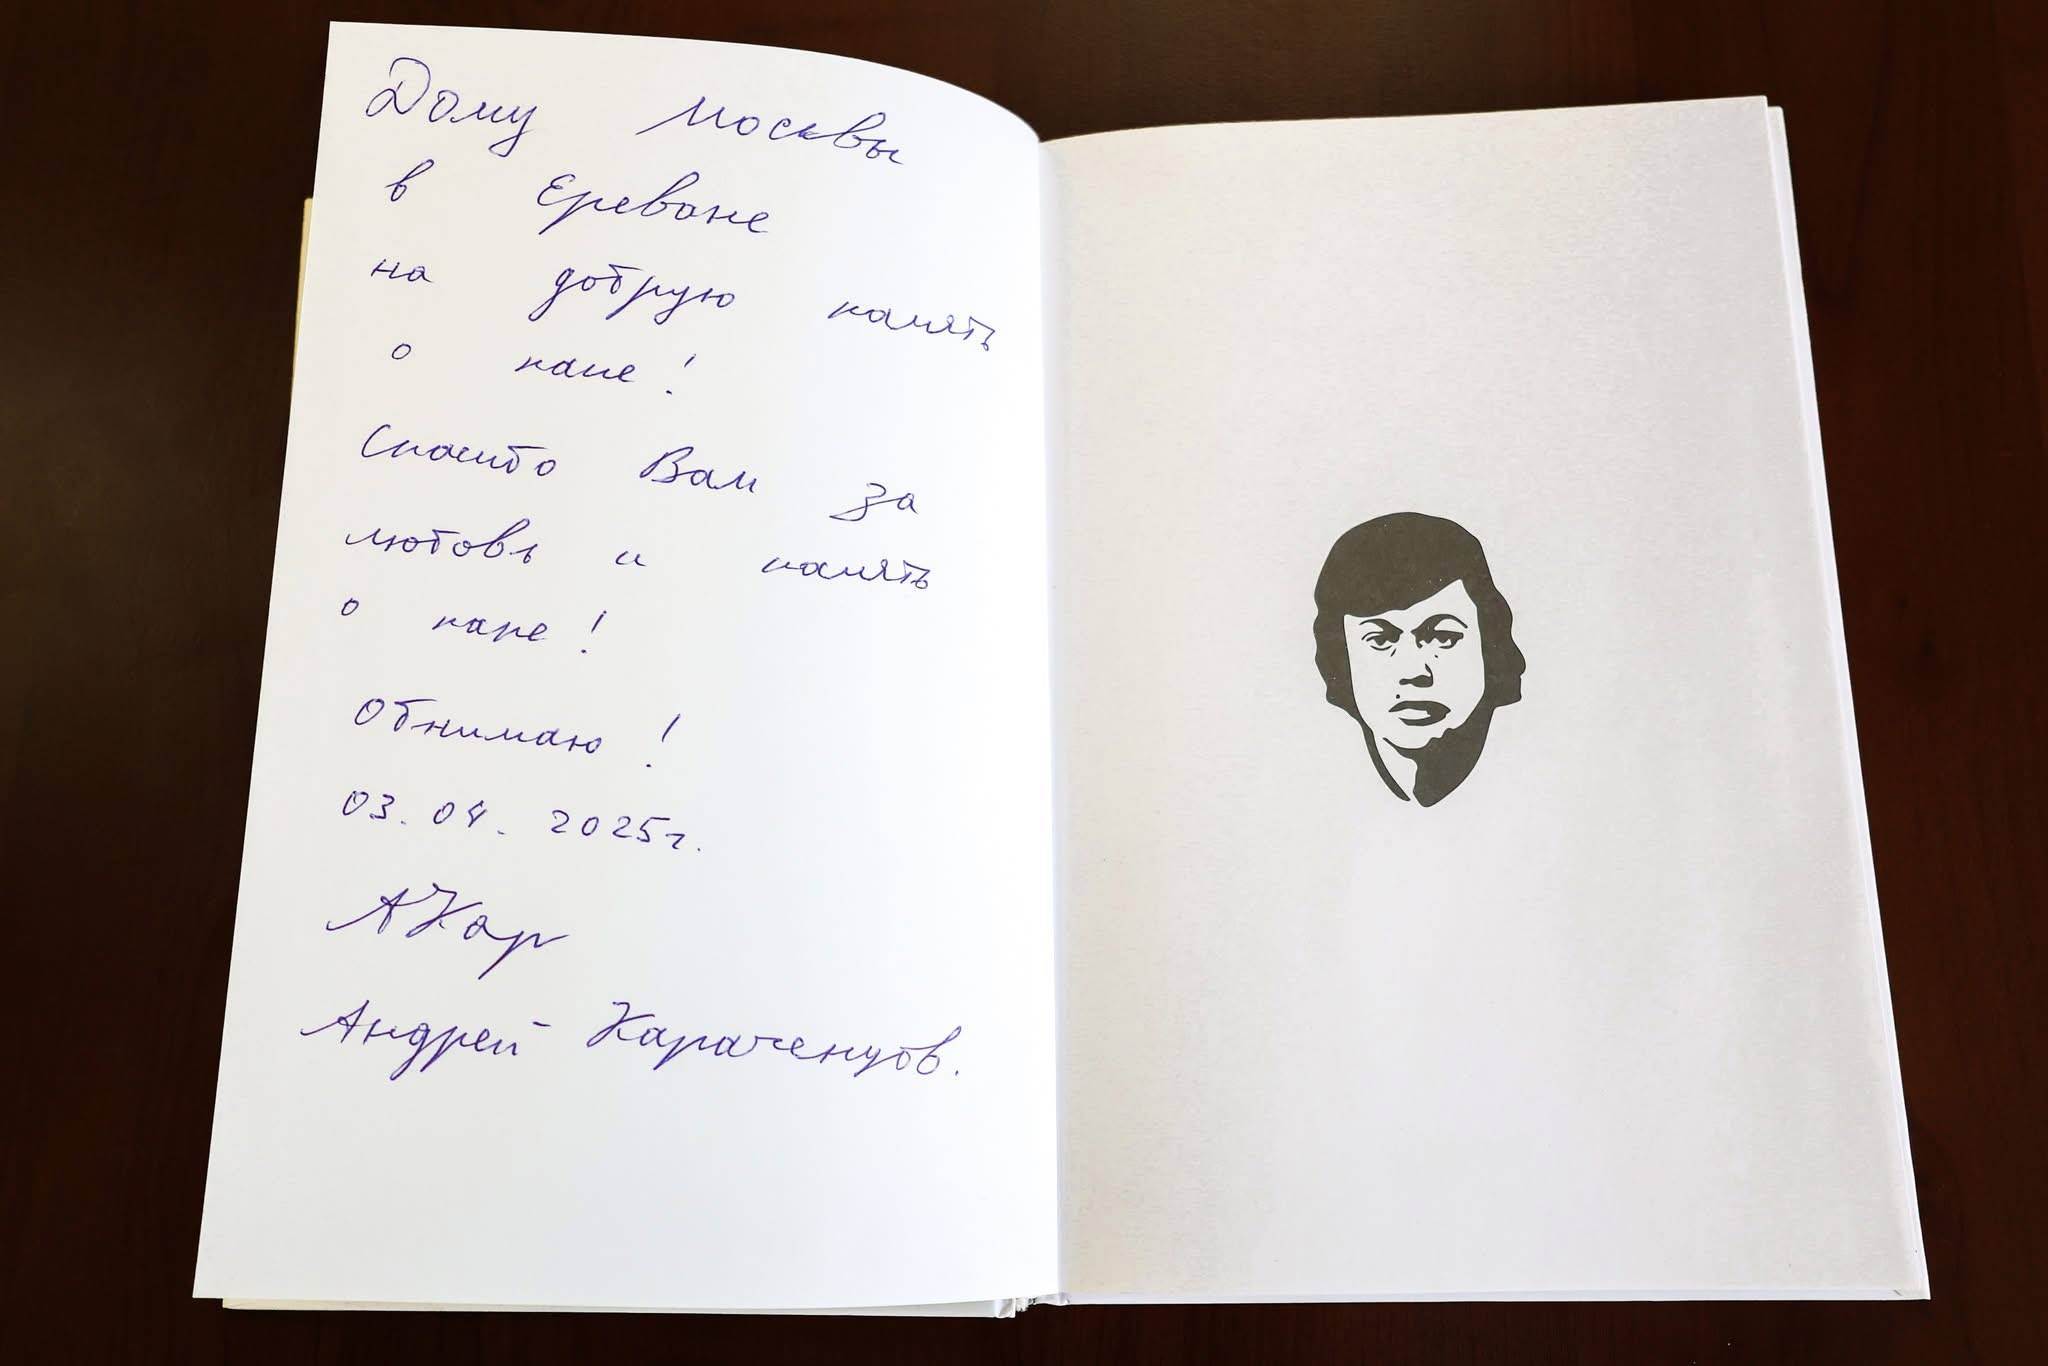 Дому Москвы
в Ереване
на добрую память
о папе!
Спасибо Вам за
любовь и память
о папе!
Обнимаю!
03.04.2025г.
АКар
Андрей Караченцов.